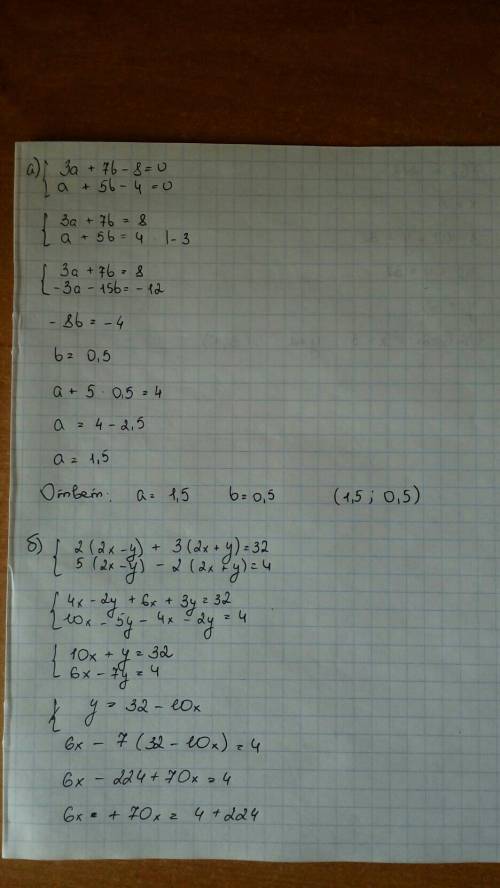 а) { 3a + 7b - 8 = 0
a + 5b - 4 = 0
{ 3a + 7b = 8
a + 5b = 4 |-3
{ 3a + 7b = 8
-3a - 15b = -12
- 8b = -4
b = 0,5
a + 5 · 0,5 = 4
a = 4 - 2,5
a = 1,5
Ответ: a = 1,5 b = 0,5 (1,5 ; 0,5)
б) { 2 (2x - y) + 3 (2x + y) = 32
5 (2x - y) - 2 (2x + y) = 4
{ 4x - 2y + 6x + 3y = 32
10x - 5y - 4x - 2y = 4
{ 10x + y = 32
6x - 7y = 4
{ y = 32 - 10x
6x - 7 (32 - 10x) = 4
6x - 224 + 70x = 4
6x = + 70x = 4 + 224